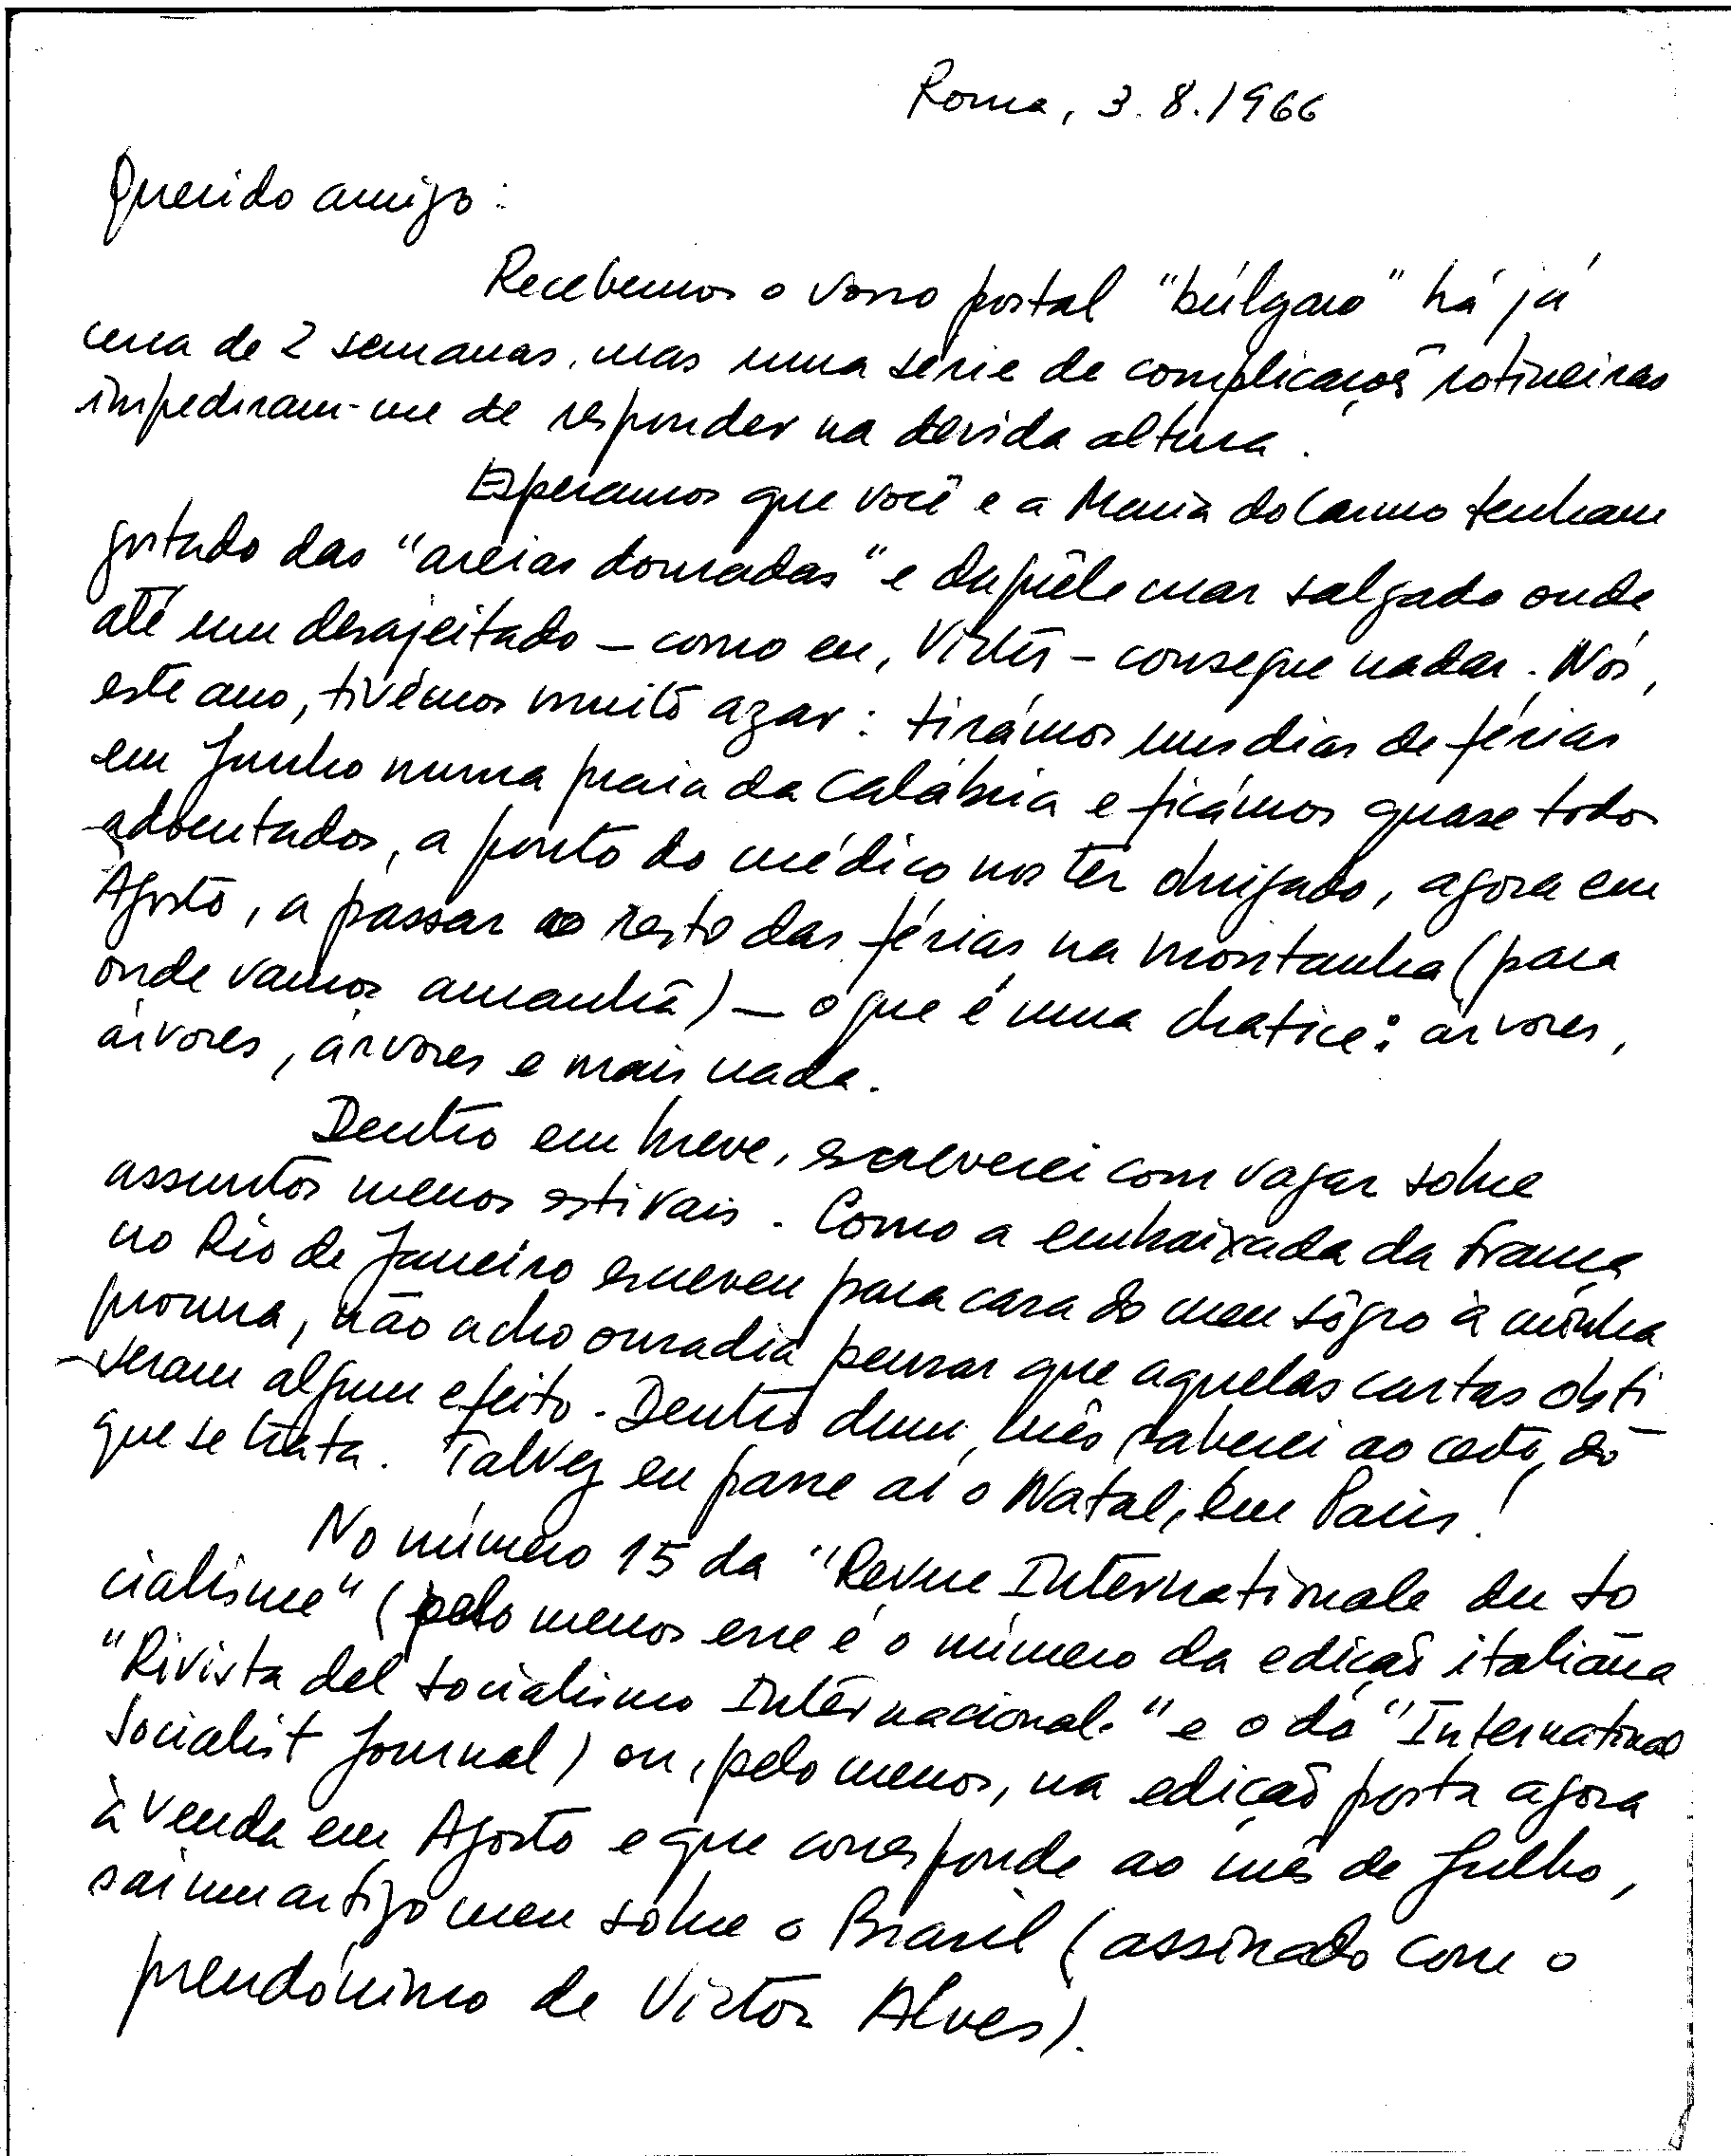 Roma, 3.8.1966
Querido amigo:
Recebemos o vosso postal "búlgaro" há já
cerca de 2 semanas, mas uma série de complicações rotineiras
impediram-me de responder na devida altura.
Esperamos que você e a Maria do Carmo tenham
gostado das "areias douradas" e daquêle mar salgado onde
até um desajeitado – como eu, Victor – consegue nadar. Nós,
este ano, tivémos muito azar: tirámos uns dias de férias
em Junho numa praia da Calábria e ficámos quase todos
adoentados, a ponto do médico nos ter obrigado, agora em
Agosto, a passar o resto das férias na montanha (para
onde vamos amanhã) – o que é uma chatice: árvores,
árvores, árvores e mais nada.
Dentro em breve, escreverei com vagar sobre
assuntos menos estivais. Como a embaixada da França
no Rio de Janeiro escreveu para casa do meu sôgro à minha
procura, não acho ousadia pensar que aquelas cartas obti
-veram algum efeito. Dentro dum mês saberei ao certo do
que se trata. Talvez eu passe aí o Natal, em Paris!
No número 15 da "Revue Internationale du So
cialisme" (pelo menos esse é o número da edição italiana
"Rivista del Socialismo Internacional." e o da "International
Socialist Journal) ou, pelo menos, na edição posta agora
à venda em Agosto e que corresponde ao mês de Julho,
sai um artigo meu sobre o Brasil (assinado com o
pseudónimo de Victor Alves).